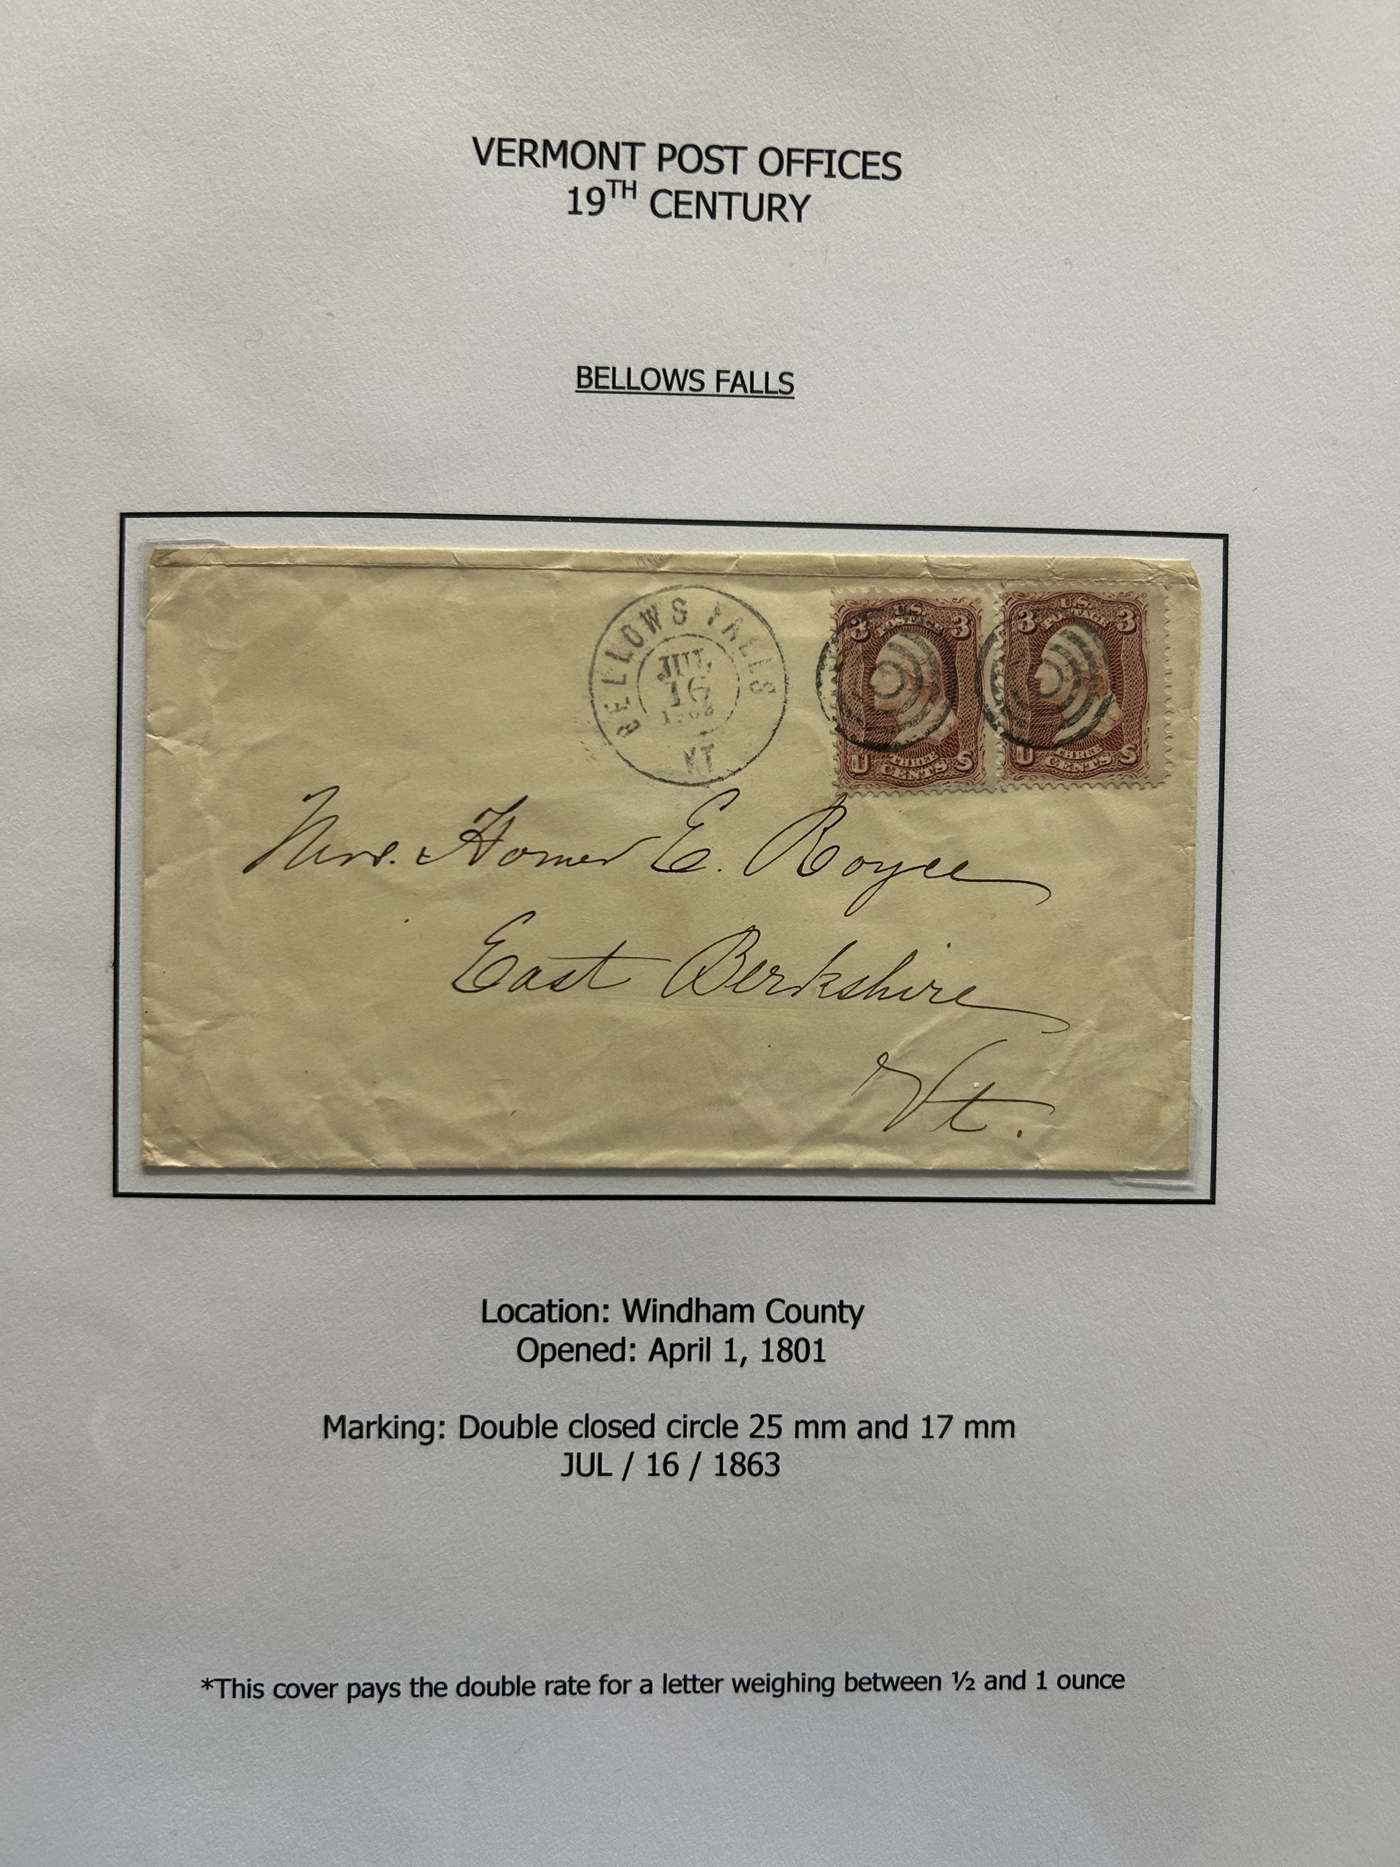 VERMONT POST OFFICES
19TH CENTURY
BELLOWS FALLS
BELLOWS FALLS
JUL
16
1863
VT
3 U.S. 3
POSTAGE
THREE
U CENTS S
3 U.S. 3
POSTAGE
THREE
U CENTS S
Mrs. Homer E. Royce
East Berkshire
Vt.
Location: Windham County
Opened: April 1, 1801
Marking: Double closed circle 25 mm and 17 mm
JUL / 16 / 1863
*This cover pays the double rate for a letter weighing between ½ and 1 ounce